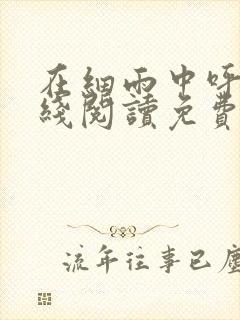 在細雨中呼
綫閱讀免費
流年往事已塵